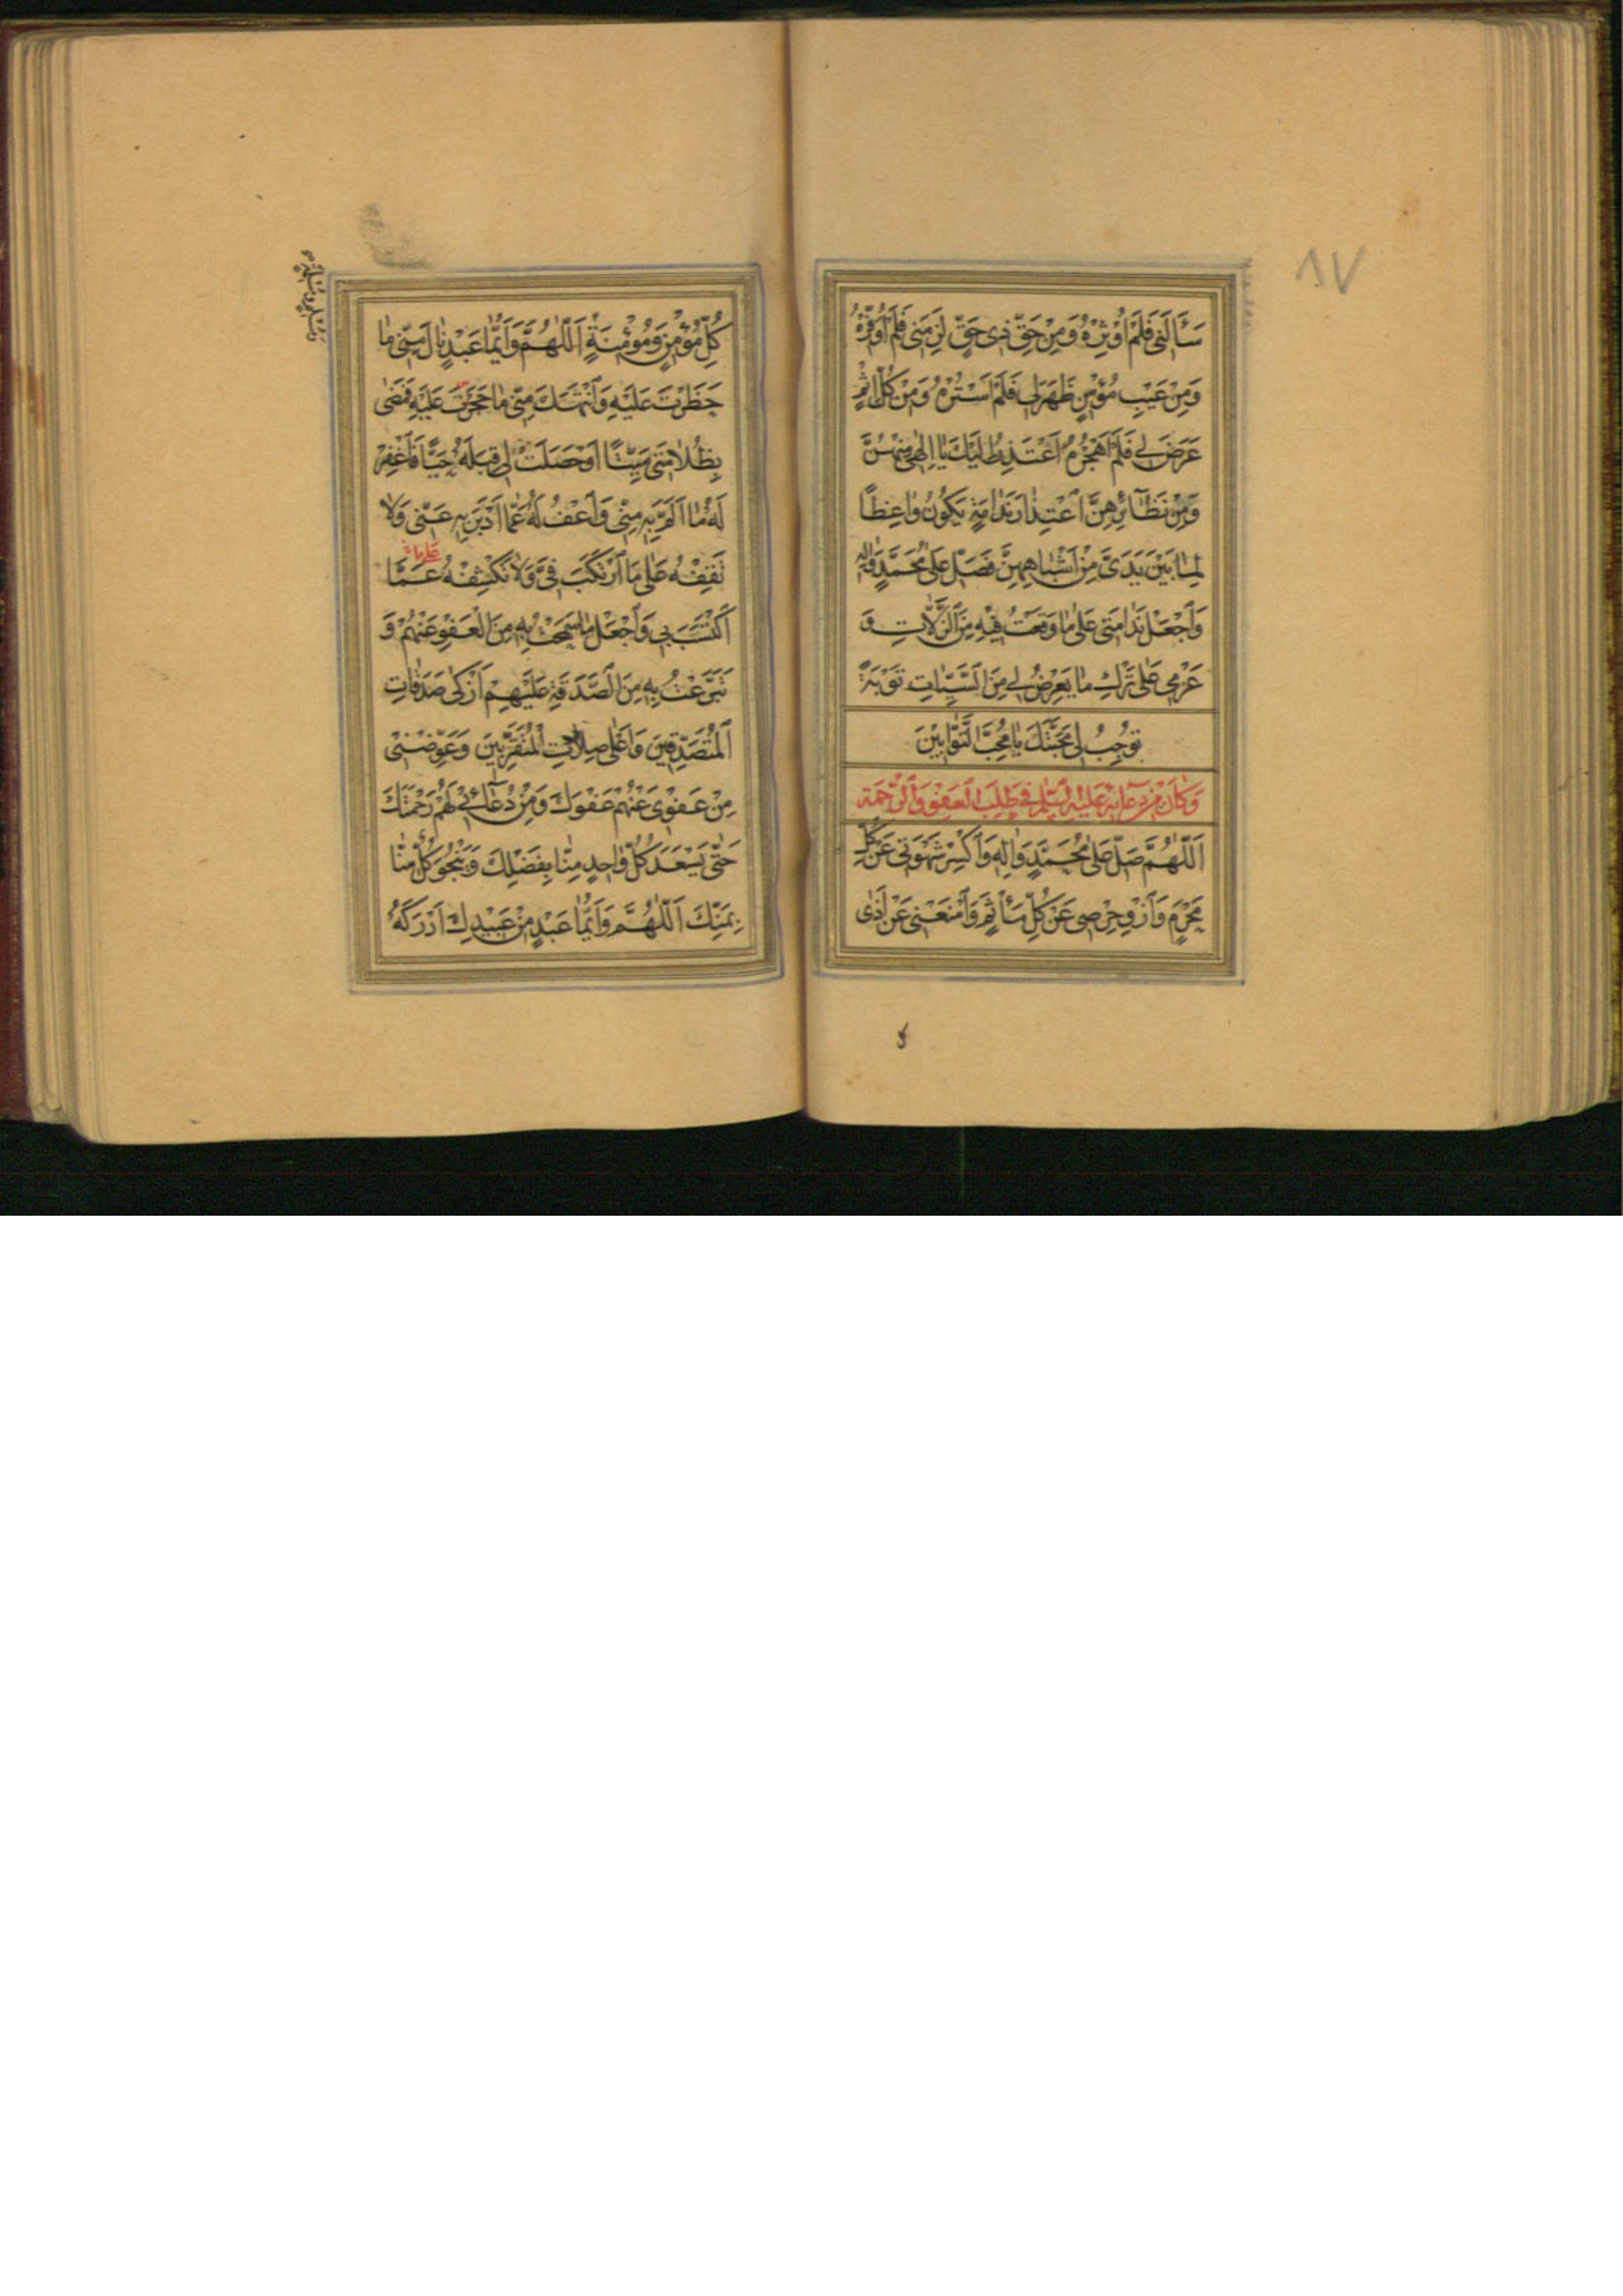 ٨٧
سَأَلَنِي فَلَمْ أُوثِرْهُ وَمِنْ حَقِّ ذِي حَقٍّ لَزِمَنِي فَلَمْ أُوَفِّرْهُ
وَمِنْ عَيْبِ مُؤْمِنٍ ظَهَرَ لِي فَلَمْ أَسْتُرْهُ وَمِنْ كُلِّ إِثْمٍ
عَرَضَ لِي فَلَمْ أَهْجُرْهُ أَعْتَذِرُ إِلَيْكَ يَا إِلٰهِي مِنْهُنَّ
وَمِنْ نَظَآئِرِهِنَّ اعْتِذَارَ نَدَامَةٍ يَكُونُ وَاعِظًا
لِمَا بَيْنَ يَدَيَّ مِنْ أَشْبَاهِهِنَّ فَصَلِّ عَلَى مُحَمَّدٍ وَآلِهِ
وَاجْعَلْ نَدَامَتِي عَلَى مَا وَقَعْتُ فِيهِ مِنَ الزَّلَّاتِ وَ
عَزْمِي عَلَى تَرْكِ مَا يَعْرِضُ لِي مِنَ السَّيِّئَاتِ تَوْبَةً
تُوجِبُ لِي مَحَبَّتَكَ يَا مُحِبَّ التَّوَّابِينَ
وَكَانَ مِنْ دُعَائِهِ عَلَيْهِ السَّلَمُ فِي طَلَبِ الْعَفْوِ وَالرَّحْمَةِ
اَللّٰهُمَّ صَلِّ عَلَى مُحَمَّدٍ وَآلِهِ وَاكْسِرْ شَهْوَتِي عَنْ كُلِّ
مَحْرَمٍ وَازْوِ حِرْصِي عَنْ كُلِّ مَأْثَمٍ وَامْنَعْنِي عَنْ أَذَى
كُلِّ مُؤْمِنٍ وَمُؤْمِنَةٍ اَللّٰهُمَّ وَأَيُّمَا عَبْدٍ نَالَ مِنِّي مَا
حَظَرْتَ عَلَيْهِ وَانْتَهَكَ مِنِّي مَا حَجَرْتَ عَلَيْهِ فَمَضَى
بِظُلَامَتِي مَيِّتًا أَوْ حَصَلَتْ لِي قِبَلَهُ حَيًّا فَاغْفِرْ
لَهُ مَا أَلَمَّ بِهِ مِنِّي وَاعْفُ لَهُ عَمَّا أَدْبَرَ بِهِ عَنِّي وَلَا
تَقِفْهُ عَلَى مَا ارْتَكَبَ فِيَّ وَلَا تَكْشِفْهُ عَمَّا
اكْتَسَبَ بِي وَاجْعَلْ مَا سَمَحْتُ بِهِ مِنَ الْعَفْوِ عَنْهُمْ وَ
تَبَرَّعْتُ بِهِ مِنَ الصَّدَقَةِ عَلَيْهِمْ أَزْكَى صَدَقَاتِ
الْمُتَصَدِّقِينَ وَأَعْلَى صِلَاتِ الْمُتَقَرِّبِينَ وَعَوِّضْنِي
مِنْ عَفْوِي عَنْهُمْ عَفْوَكَ وَمِنْ دُعَآئِي لَهُمْ رَحْمَتَكَ
حَتَّى يَسْعَدَ كُلُّ وَاحِدٍ مِنَّا بِفَضْلِكَ وَيَنْجُوَ كُلٌّ مِنَّا
بِمَنِّكَ اَللّٰهُمَّ وَأَيُّمَا عَبْدٍ مِنْ عَبِيدِكَ أَدْرَكَهُ